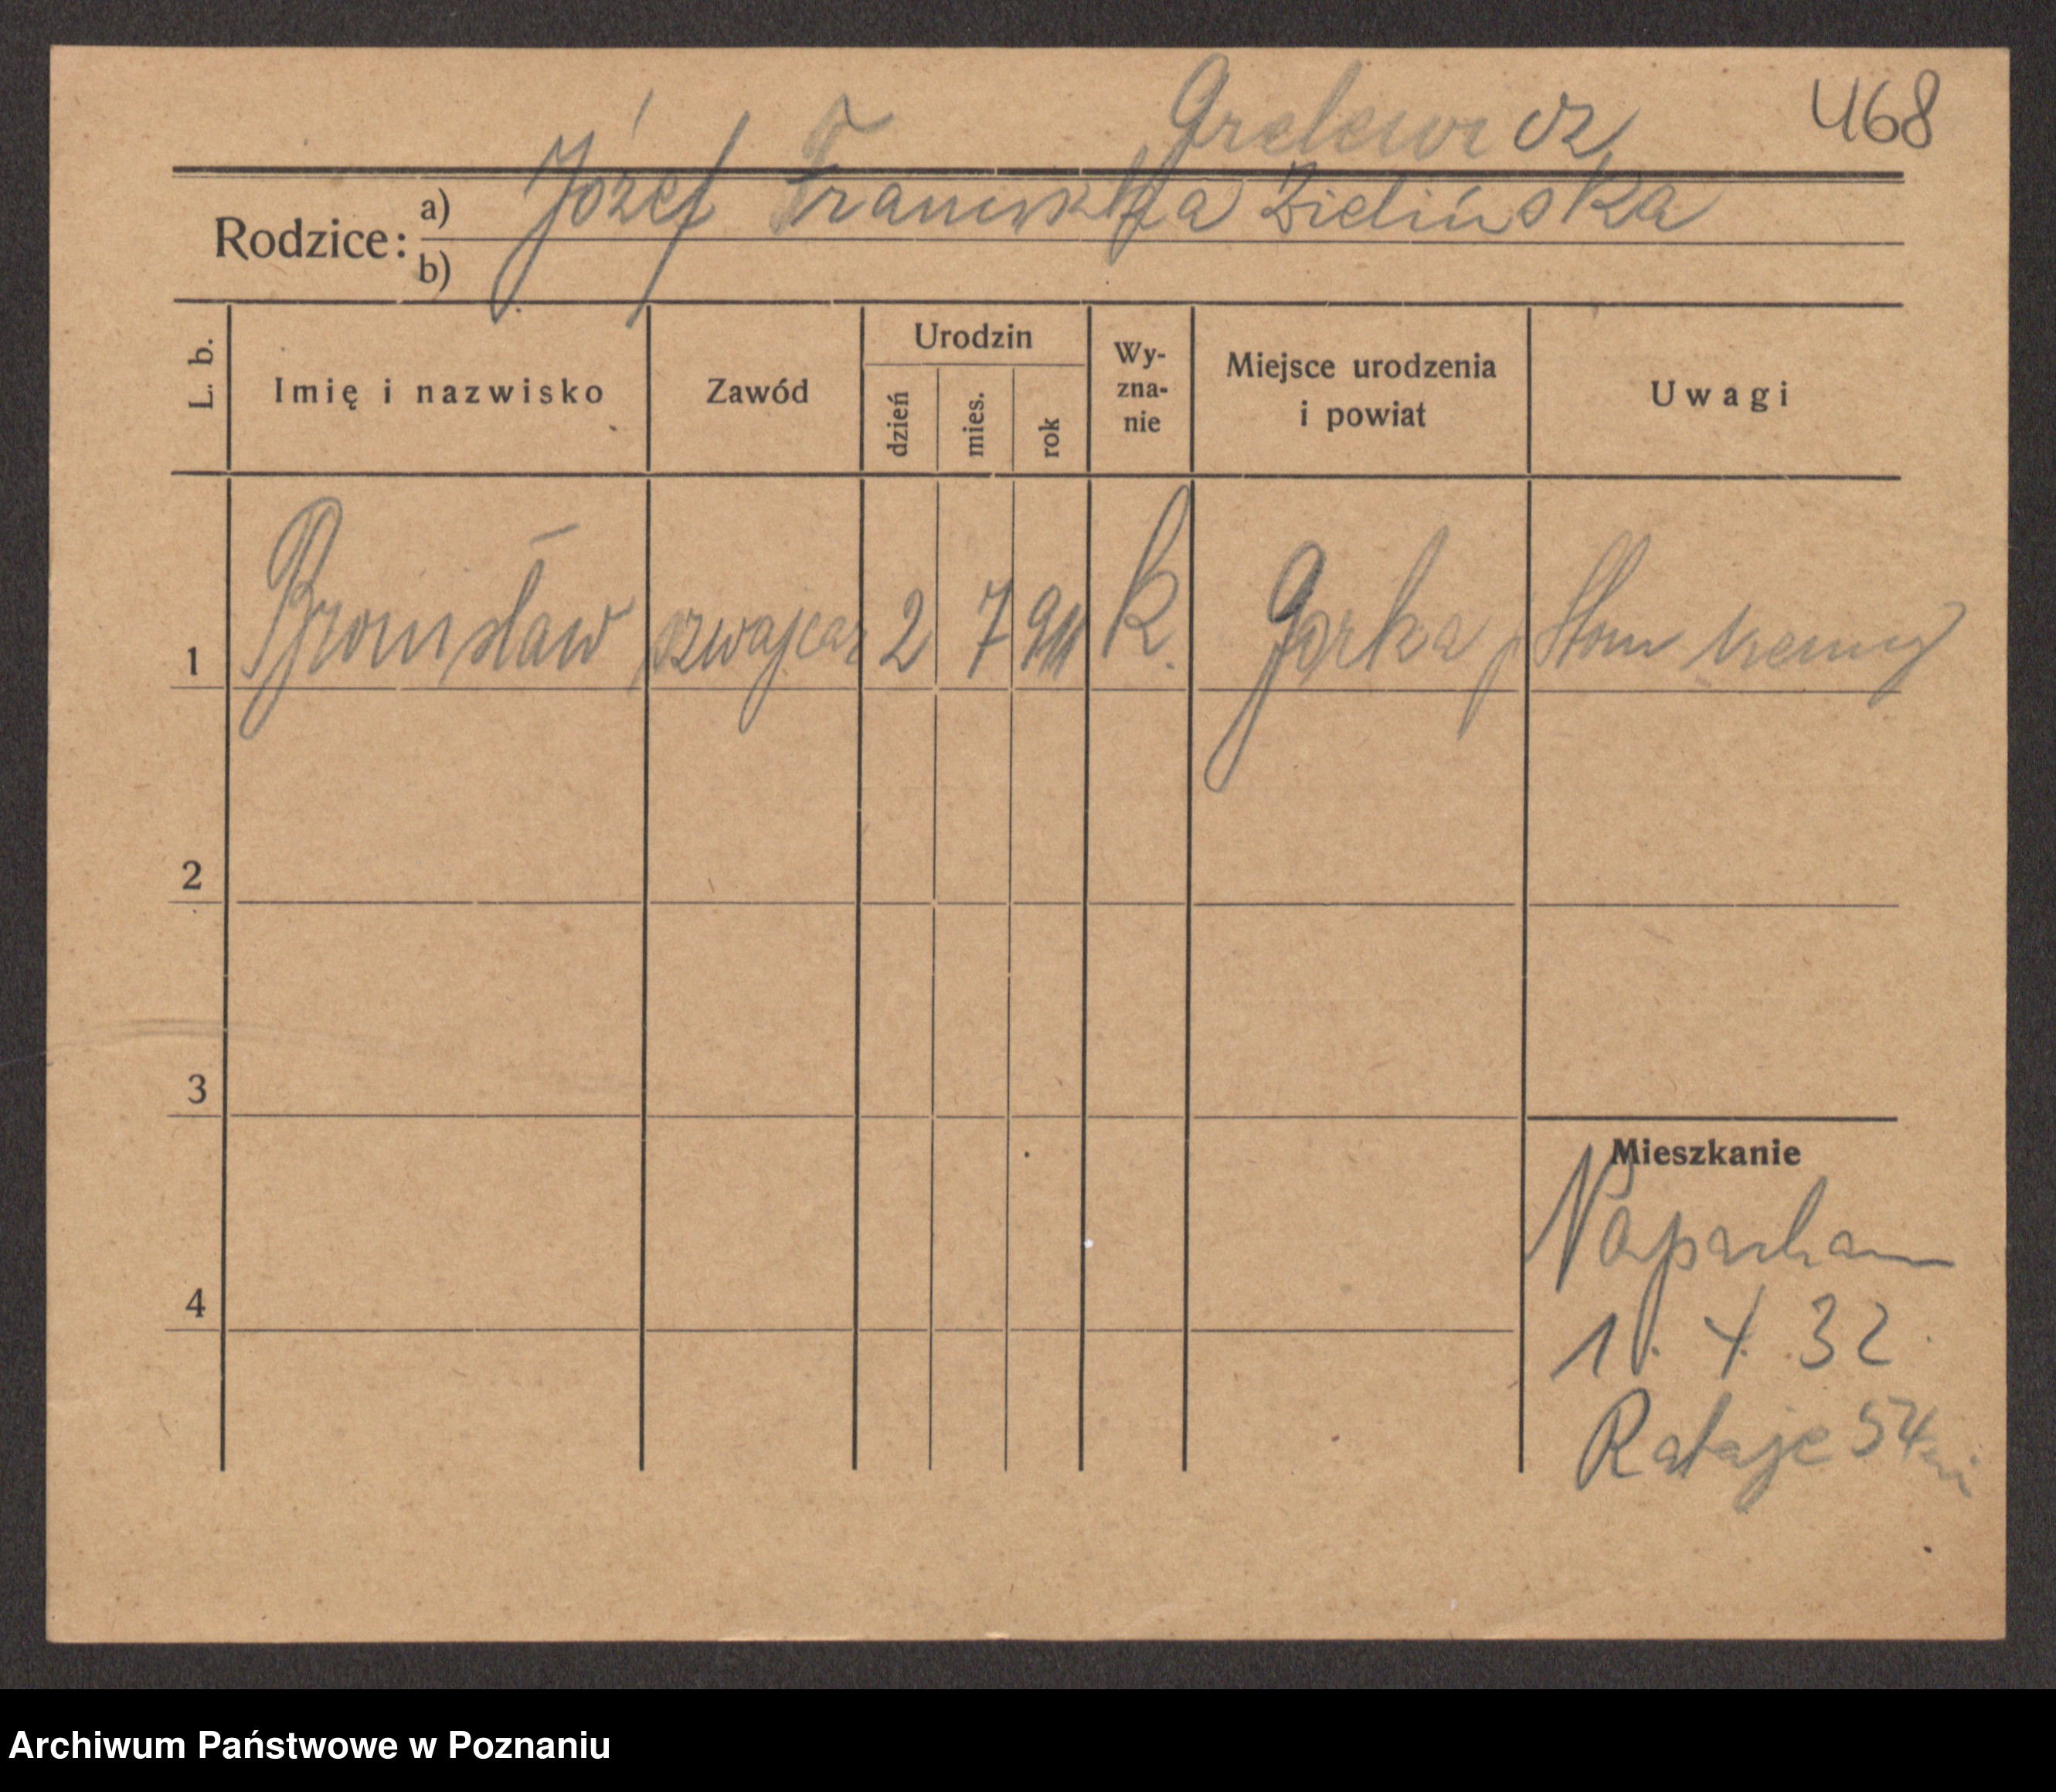 Grelewicz 468
Rodzice: a) Józef Franciszka Zielińska
b)
L. b. Imię i nazwisko Zawód Urodzin dzień mies. rok Wyznanie Miejsce urodzenia i powiat Uwagi
1 Bronisław szwajcar 2 7 911 k. Gorka p
2
3
Mieszkanie
4
1. 4. 32.
Rataje 54
Archiwum Państwowe w Poznaniu